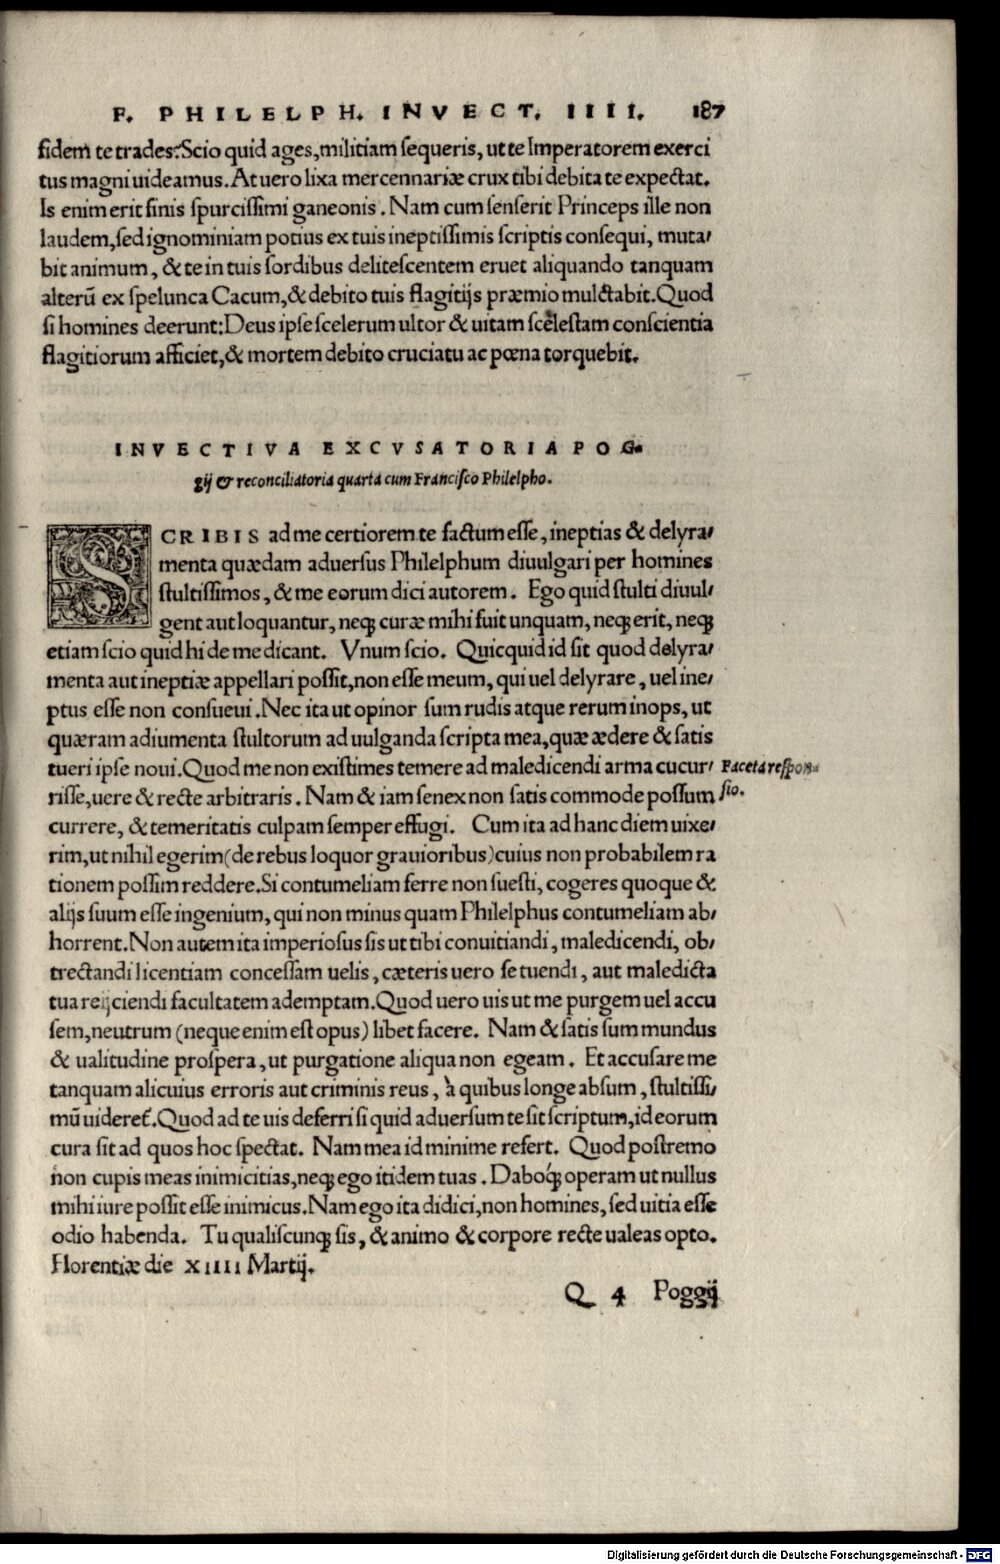 F. PHILELPH. INVECT. IIII. 187
fidem te trades: Scio quid ages, militiam sequeris, ut te Imperatorem exerci
tus magni uideamus. At uero lixa mercennariæ crux tibi debita te expectat.
Is enim erit finis spurcissimi ganeonis. Nam cum senserit Princeps ille non
laudem, sed ignominiam potius ex tuis ineptissimis scriptis consequi, muta/
bit animum, & te in tuis sordibus delitescentem eruet aliquando tanquam
alterū ex spelunca Cacum, & debito tuis flagitijs præmio mulctabit. Quod
si homines deerunt: Deus ipse scelerum ultor & uitam scelestam conscientia
flagitiorum afficiet, & mortem debito cruciatu ac pœna torquebit.
INVECTIVA EXCVSATORIA POG-
gij & reconciliatoria quarta cum Francisco Philelpho.
SCRIBIS ad me certiorem te factum esse, ineptias & delyra/
menta quædam aduersus Philelphum diuulgari per homines
stultissimos, & me eorum dici autorem. Ego quid stulti diuul/
gent aut loquantur, neq; curæ mihi fuit unquam, neq; erit, neq;
etiam scio quid hi de me dicant. Vnum scio. Quicquid id sit quod delyra/
menta aut ineptiæ appellari possit, non esse meum, qui uel delyrare, uel ine/
ptus esse non consueui. Nec ita ut opinor sum rudis atque rerum inops, ut
quæram adiumenta stultorum ad uulganda scripta mea, quæ ædere & satis
tueri ipse noui. Quod me non existimes temere ad maledicendi arma cucur/ Faceta respon-
risse, uere & recte arbitraris. Nam & iam senex non satis commode possum sio.
currere, & temeritatis culpam semper effugi. Cum ita ad hanc diem uixe/
rim, ut nihil egerim (de rebus loquor grauioribus) cuius non probabilem ra
tionem possim reddere. Si contumeliam ferre non suesti, cogeres quoque &
alijs suum esse ingenium, qui non minus quam Philelphus contumeliam ab/
horrent. Non autem ita imperiosus sis ut tibi conuitiandi, maledicendi, ob/
trectandi licentiam concessam uelis, cæteris uero se tuendi, aut maledicta
tua reijciendi facultatem ademptam. Quod uero uis ut me purgem uel accu
sem, neutrum (neque enim est opus) libet facere. Nam & satis sum mundus
& ualitudine prospera, ut purgatione aliqua non egeam. Et accusare me
tanquam alicuius erroris aut criminis reus, à quibus longe absum, stultissi/
mū uideret̃. Quod ad te uis deferri si quid aduersum te sit scriptum, id eorum
cura sit ad quos hoc spectat. Nam mea id minime refert. Quod postremo
non cupis meas inimicitias, neq; ego itidem tuas. Daboq́; operam ut nullus
mihi iure possit esse inimicus. Nam ego ita didici, non homines, sed uitia esse
odio habenda. Tu qualiscunq; sis, & animo & corpore recte ualeas opto.
Florentiæ die XIIII Martij.
Q 4 Poggij
Digitalisierung gefördert durch die Deutsche Forschungsgemeinschaft - DFG